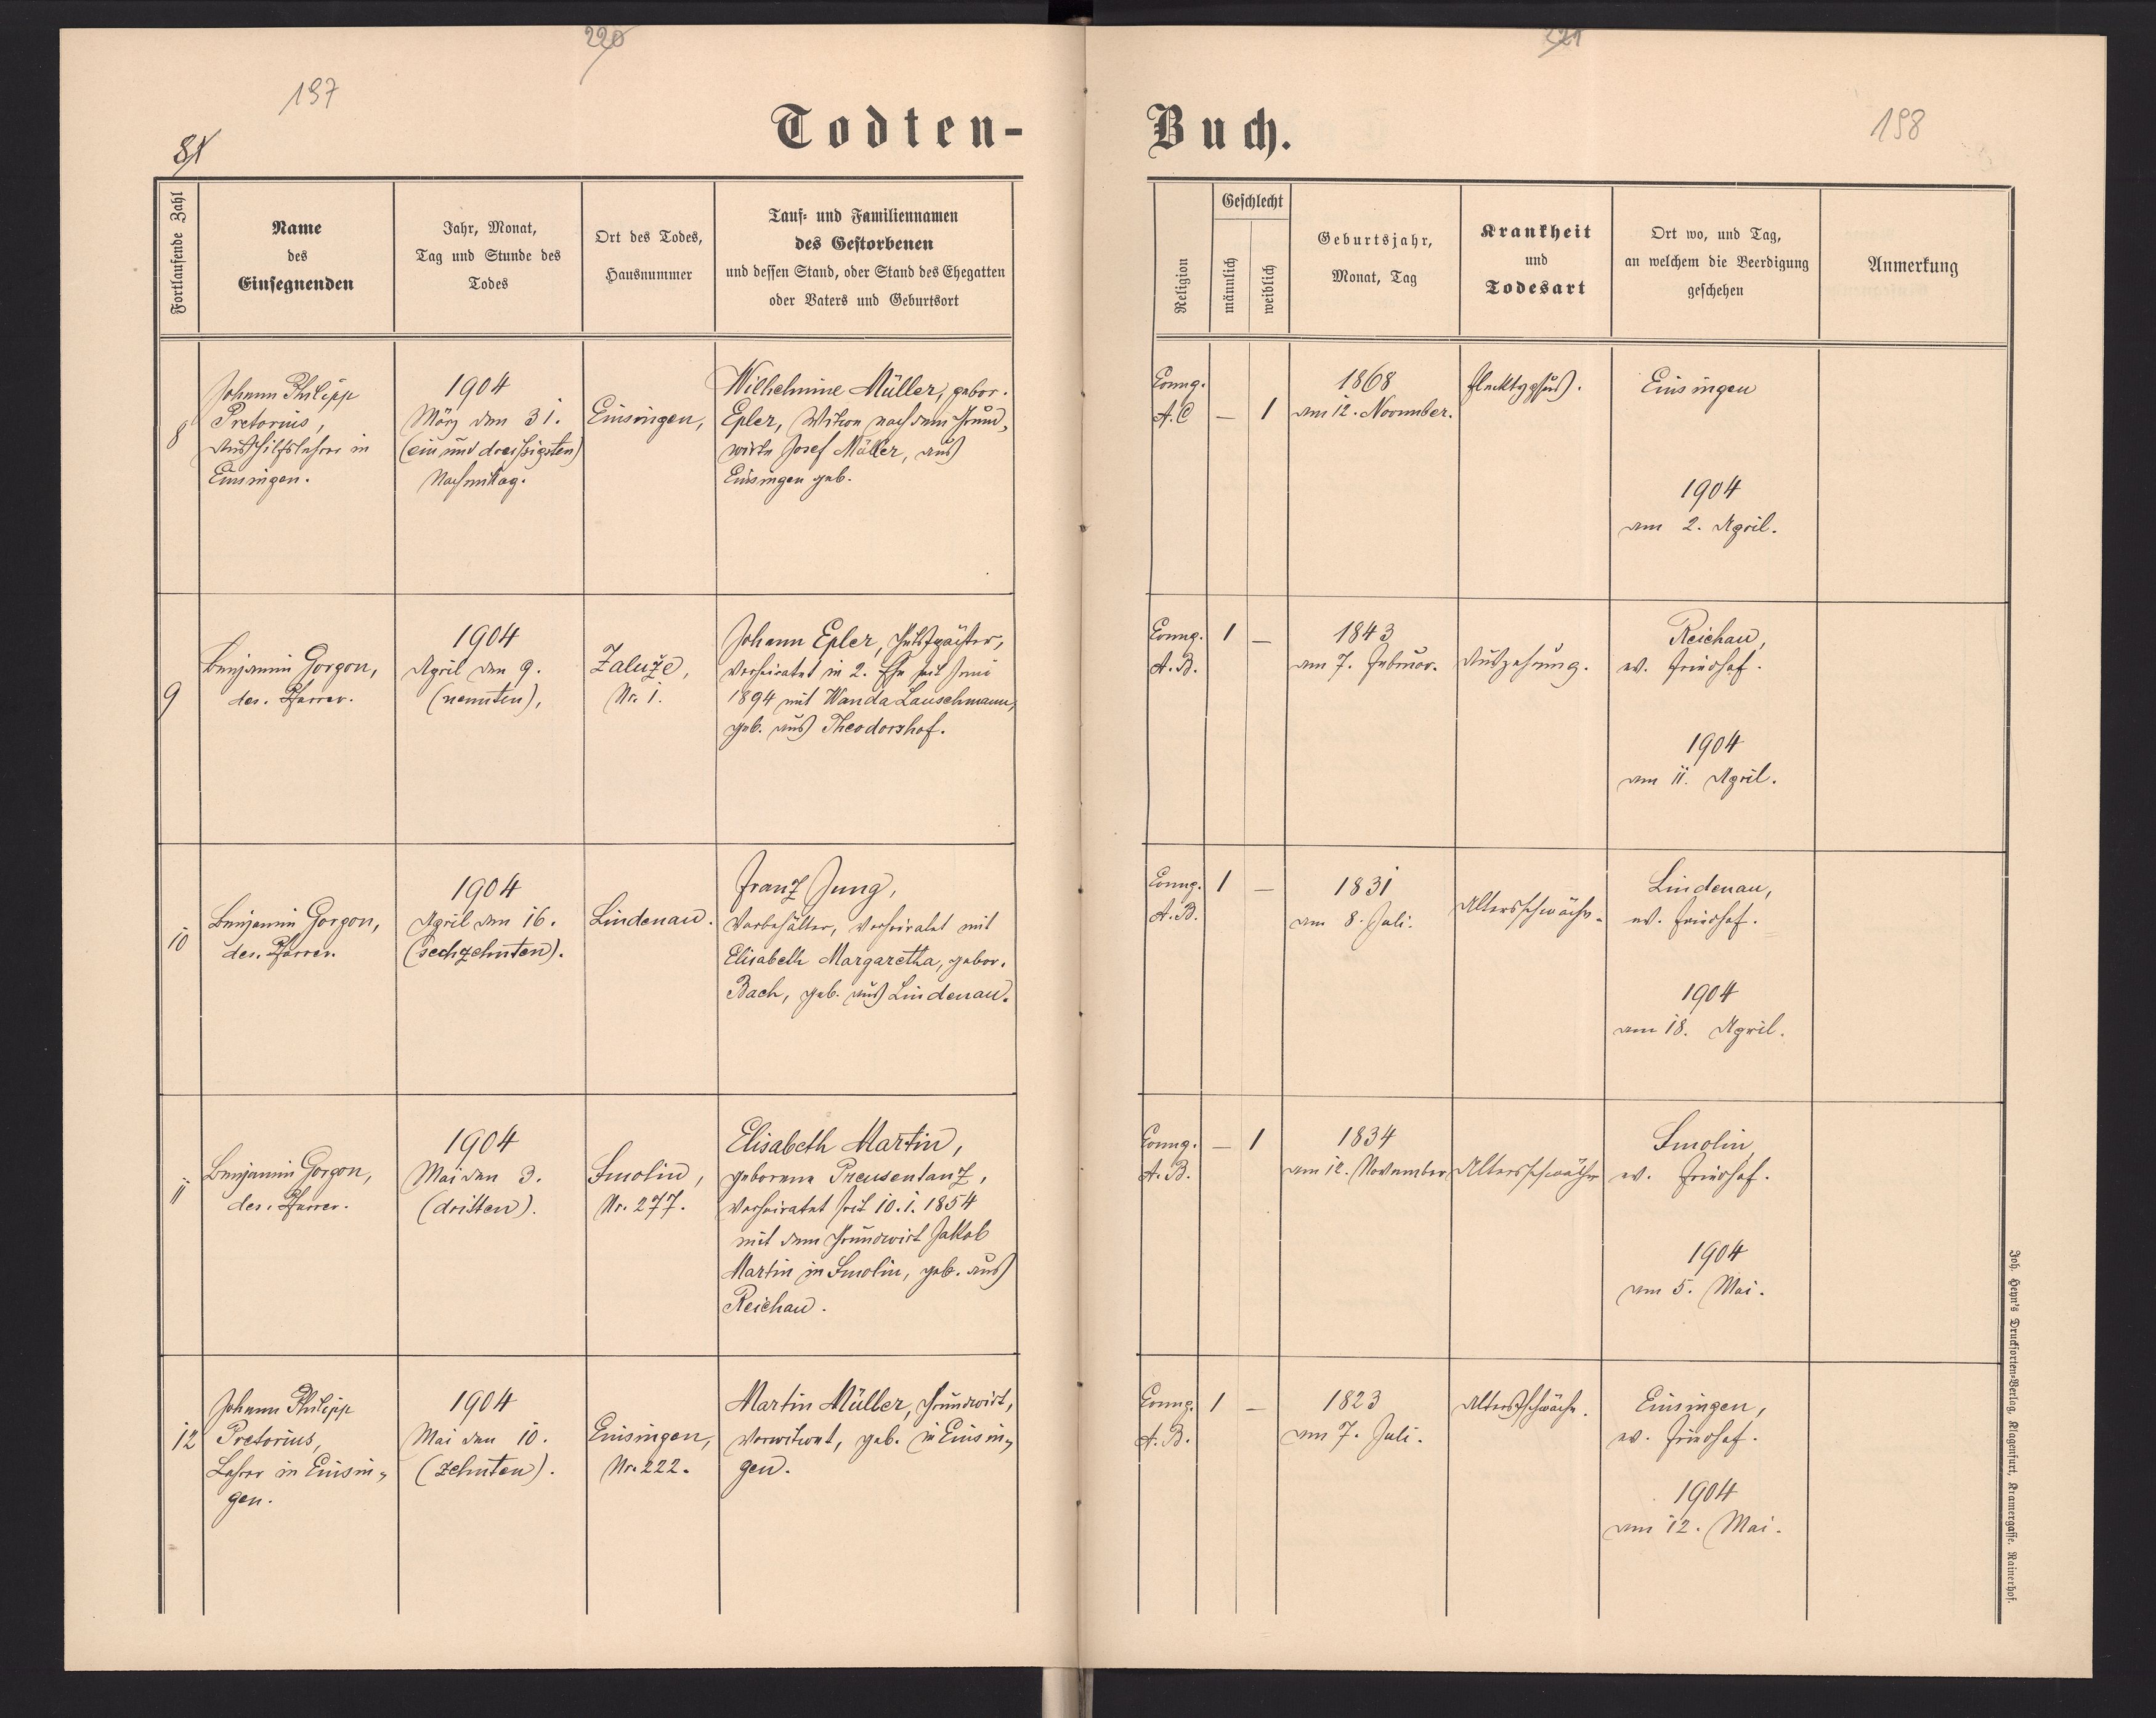 220
197
81
Todten-
Fortlaufende Zahl
Name
des
Einsegnenden
Jahr, Monat,
Tag und Stunde des
Todes
Ort des Todes,
Hausnummer
Tauf- und Familiennamen
des Gestorbenen
und dessen Stand, oder Stand des Ehegatten
oder Vaters und Geburtsort
8
Johann Philipp
Pretorius,
Aushilfslehrer in
Einsingen.
1904
März den 31.
(ein und dreißigsten)
Nachmittag.
Einsingen,
Wilhelmine Müller, gebor.
Epler, Witwe nach dem Grund-
wirte Josef Müller, aus
Einsingen geb.
9
Benjamin Gorgon,
des. Pfarrer.
1904
April den 9.
(neunten),
Zaluże,
Nr. 1.
Johann Epler, Gutspächter,
verheiratet in 2. Ehe seit Juni
1894 mit Wanda Lauschmann,
geb. aus Theodorshof.
10
Benjamin Gorgon,
des. Pfarrer.
1904
April den 16.
(sechzehnten).
Lindenau.
Franz Jung,
Vorbehälter, verheiratet mit
Elisabeth Margaretha, gebor.
Bach, geb. aus Lindenau.
11
Benjamin Gorgon,
des. Pfarrer.
1904
Mai den 3.
(dritten).
Smolin,
Nr. 277.
Elisabeth Martin,
geborene Preusentanz,
verheiratet seit 10.1.1854
mit dem Grundwirt Jakob
Martin in Smolin, geb. aus
Reichau.
12
Johann Philipp
Pretorius,
Lehrer in Einsin-
gen.
1904
Mai den 10.
(zehnten).
Einsingen,
Nr. 222.
Martin Müller, Grundwirt,
verwitwet, geb. in Einsin-
gen.
221
198
Buch.
Religion
Geschlecht
männlich
weiblich
Geburtsjahr,
Monat, Tag
Krankheit
und
Todesart
Ort wo, und Tag,
an welchem die Beerdigung
geschehen
Anmerkung
Evang.
A.C
—
1
1868
am 12. November.
Flecktyphus.
Einsingen
1904
am 2. April.
Evang.
A.B.
1
—
1843
am 7. Februar.
Auszehrung.
Reichau,
ev. Friedhof.
1904
am 11. April.
Evang.
A.B.
1
—
1831
am 8. Juli.
Altersschwäche.
Lindenau,
ev. Friedhof.
1904
am 18. April.
Evang.
A.B.
—
1
1834
am 12. November
Altersschwäche
Smolin
ev. Friedhof.
1904
am 5. Mai.
Evang.
A.B.
1
—
1823
am 7. Juli.
Altersschwäche.
Einsingen,
ev. Friedhof.
1904
am 12. Mai.
Joh. Heyn's Drucksorten-Verlag, Klagenfurt, Kramergasse, Rainerhof.